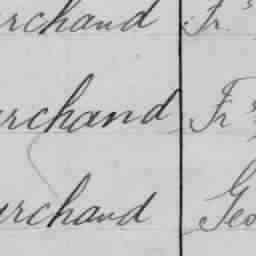 rchand Fr s
archand Fr s
archand Geo